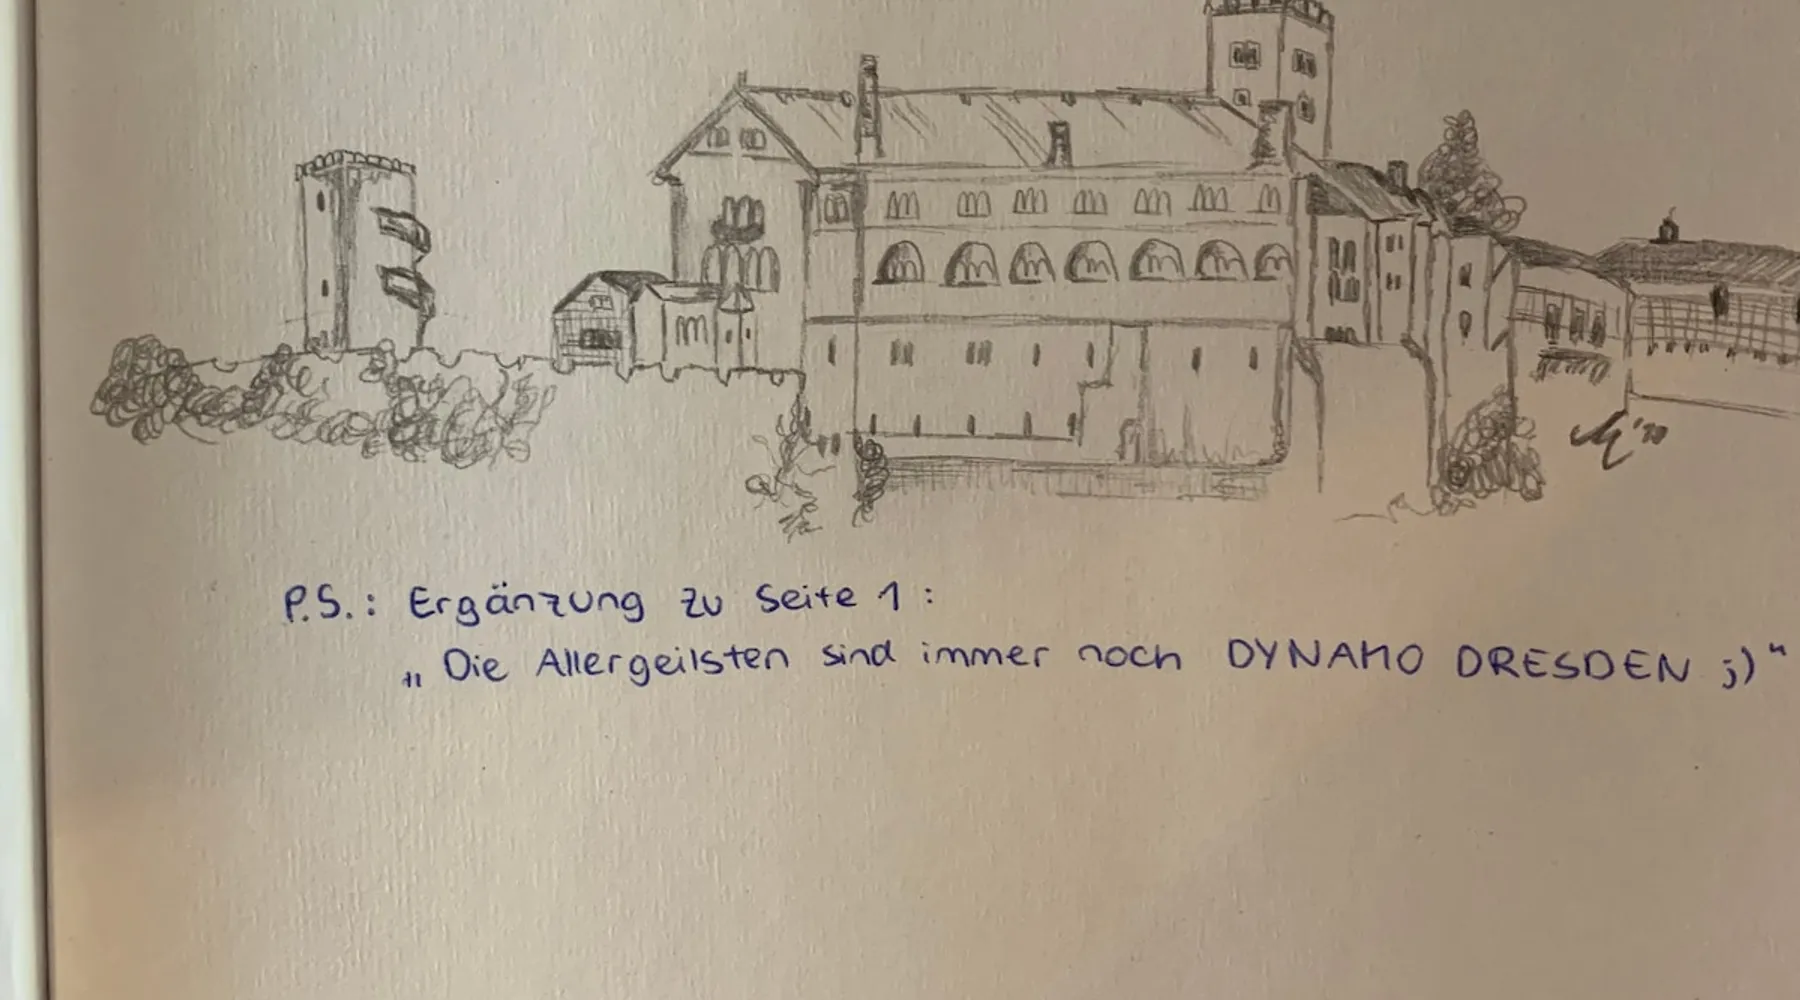 P.S.: Ergänzung zu Seite 1:
„Die Allergeilsten sind immer noch DYNAMO DRESDEN ;)“